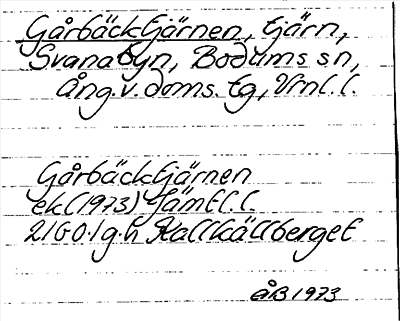 Gårbäcktjärnen, tjärn,
Svanabyn, Bodums sn,
Ång.v.doms.tg, Vrnl.l.
Gårbäcktjärnen
ek(1973) Jämtl.l.
21G0.1g.h Kallkällberget
åB 1973